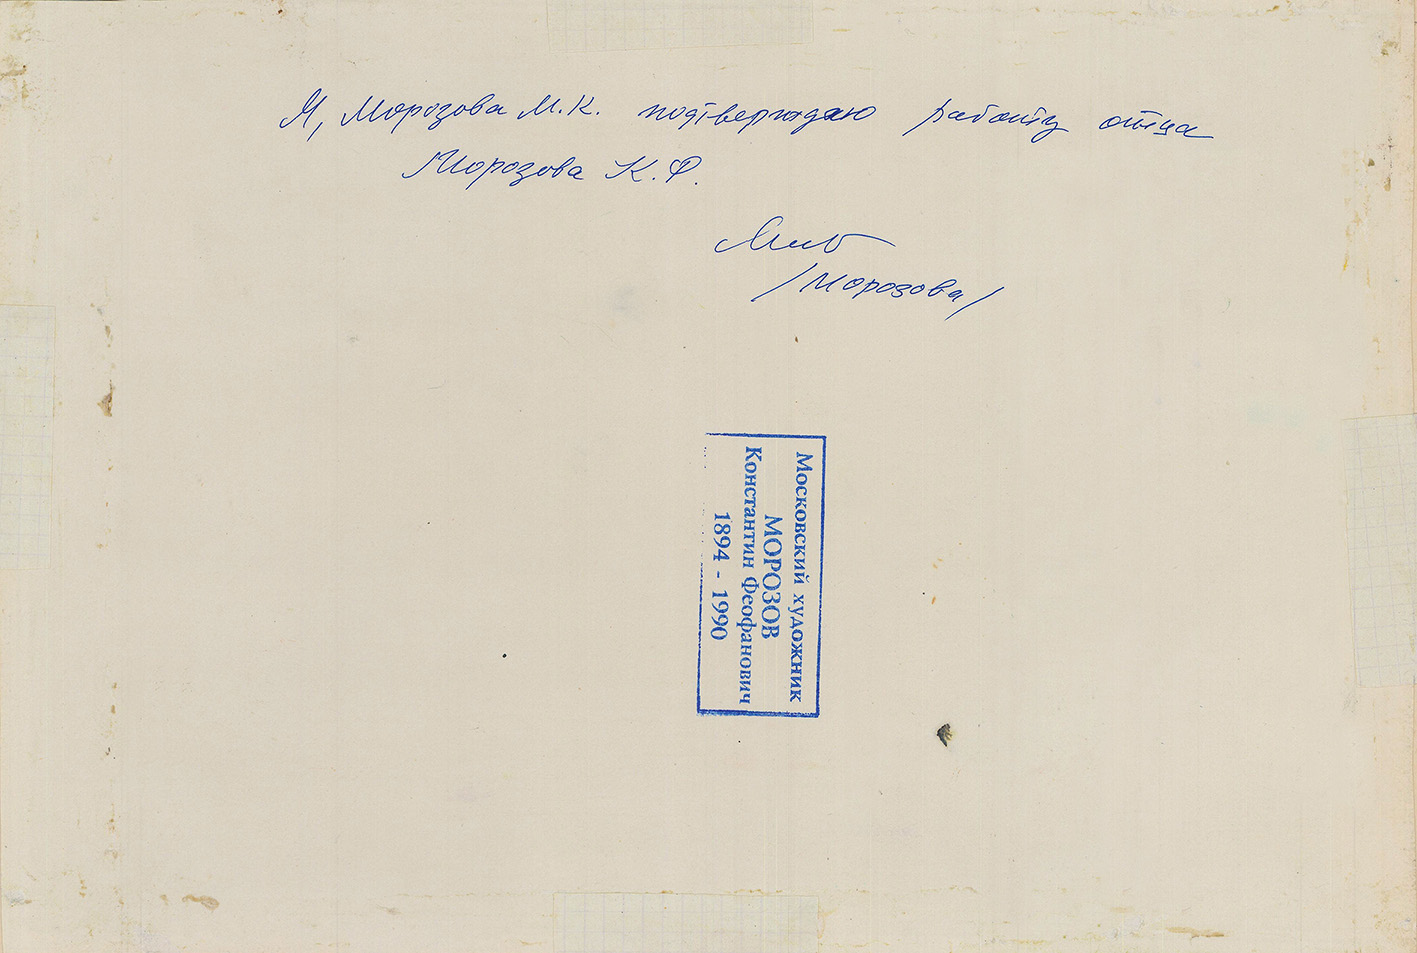 Я, Морозова М.К. подтверждаю работу отца
Морозова К.Ф.
/Морозова/
Московский художник
МОРОЗОВ
Константин Феофанович
1894 - 1990